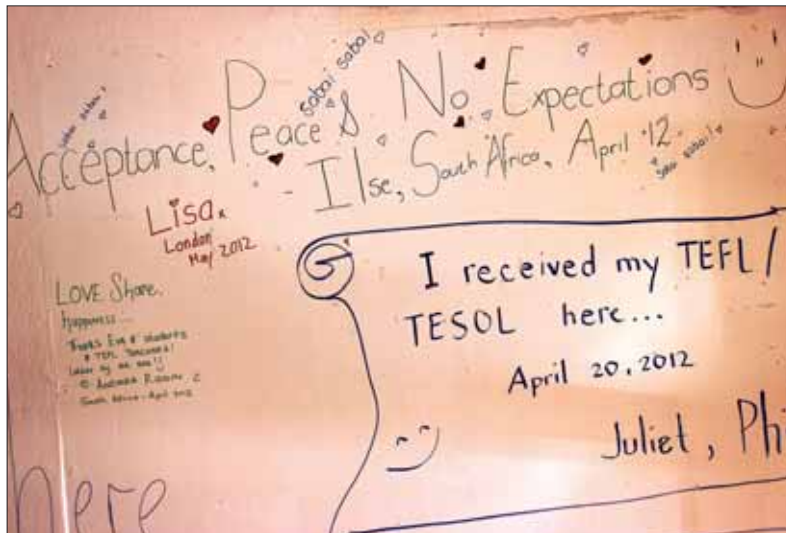 sabai sabai
sabai sabai
Acceptance, Peace & No Expectations
Ilse, South Africa, April '12
sabai sabai
Lisa x
London
May 2012
LOVE Share,
happiness...
Thanks Eva & students
& TEFL Teachers!
South Africa - April 2012
I received my TEFL/
TESOL here...
April 20, 2012
Juliet, Phi
here